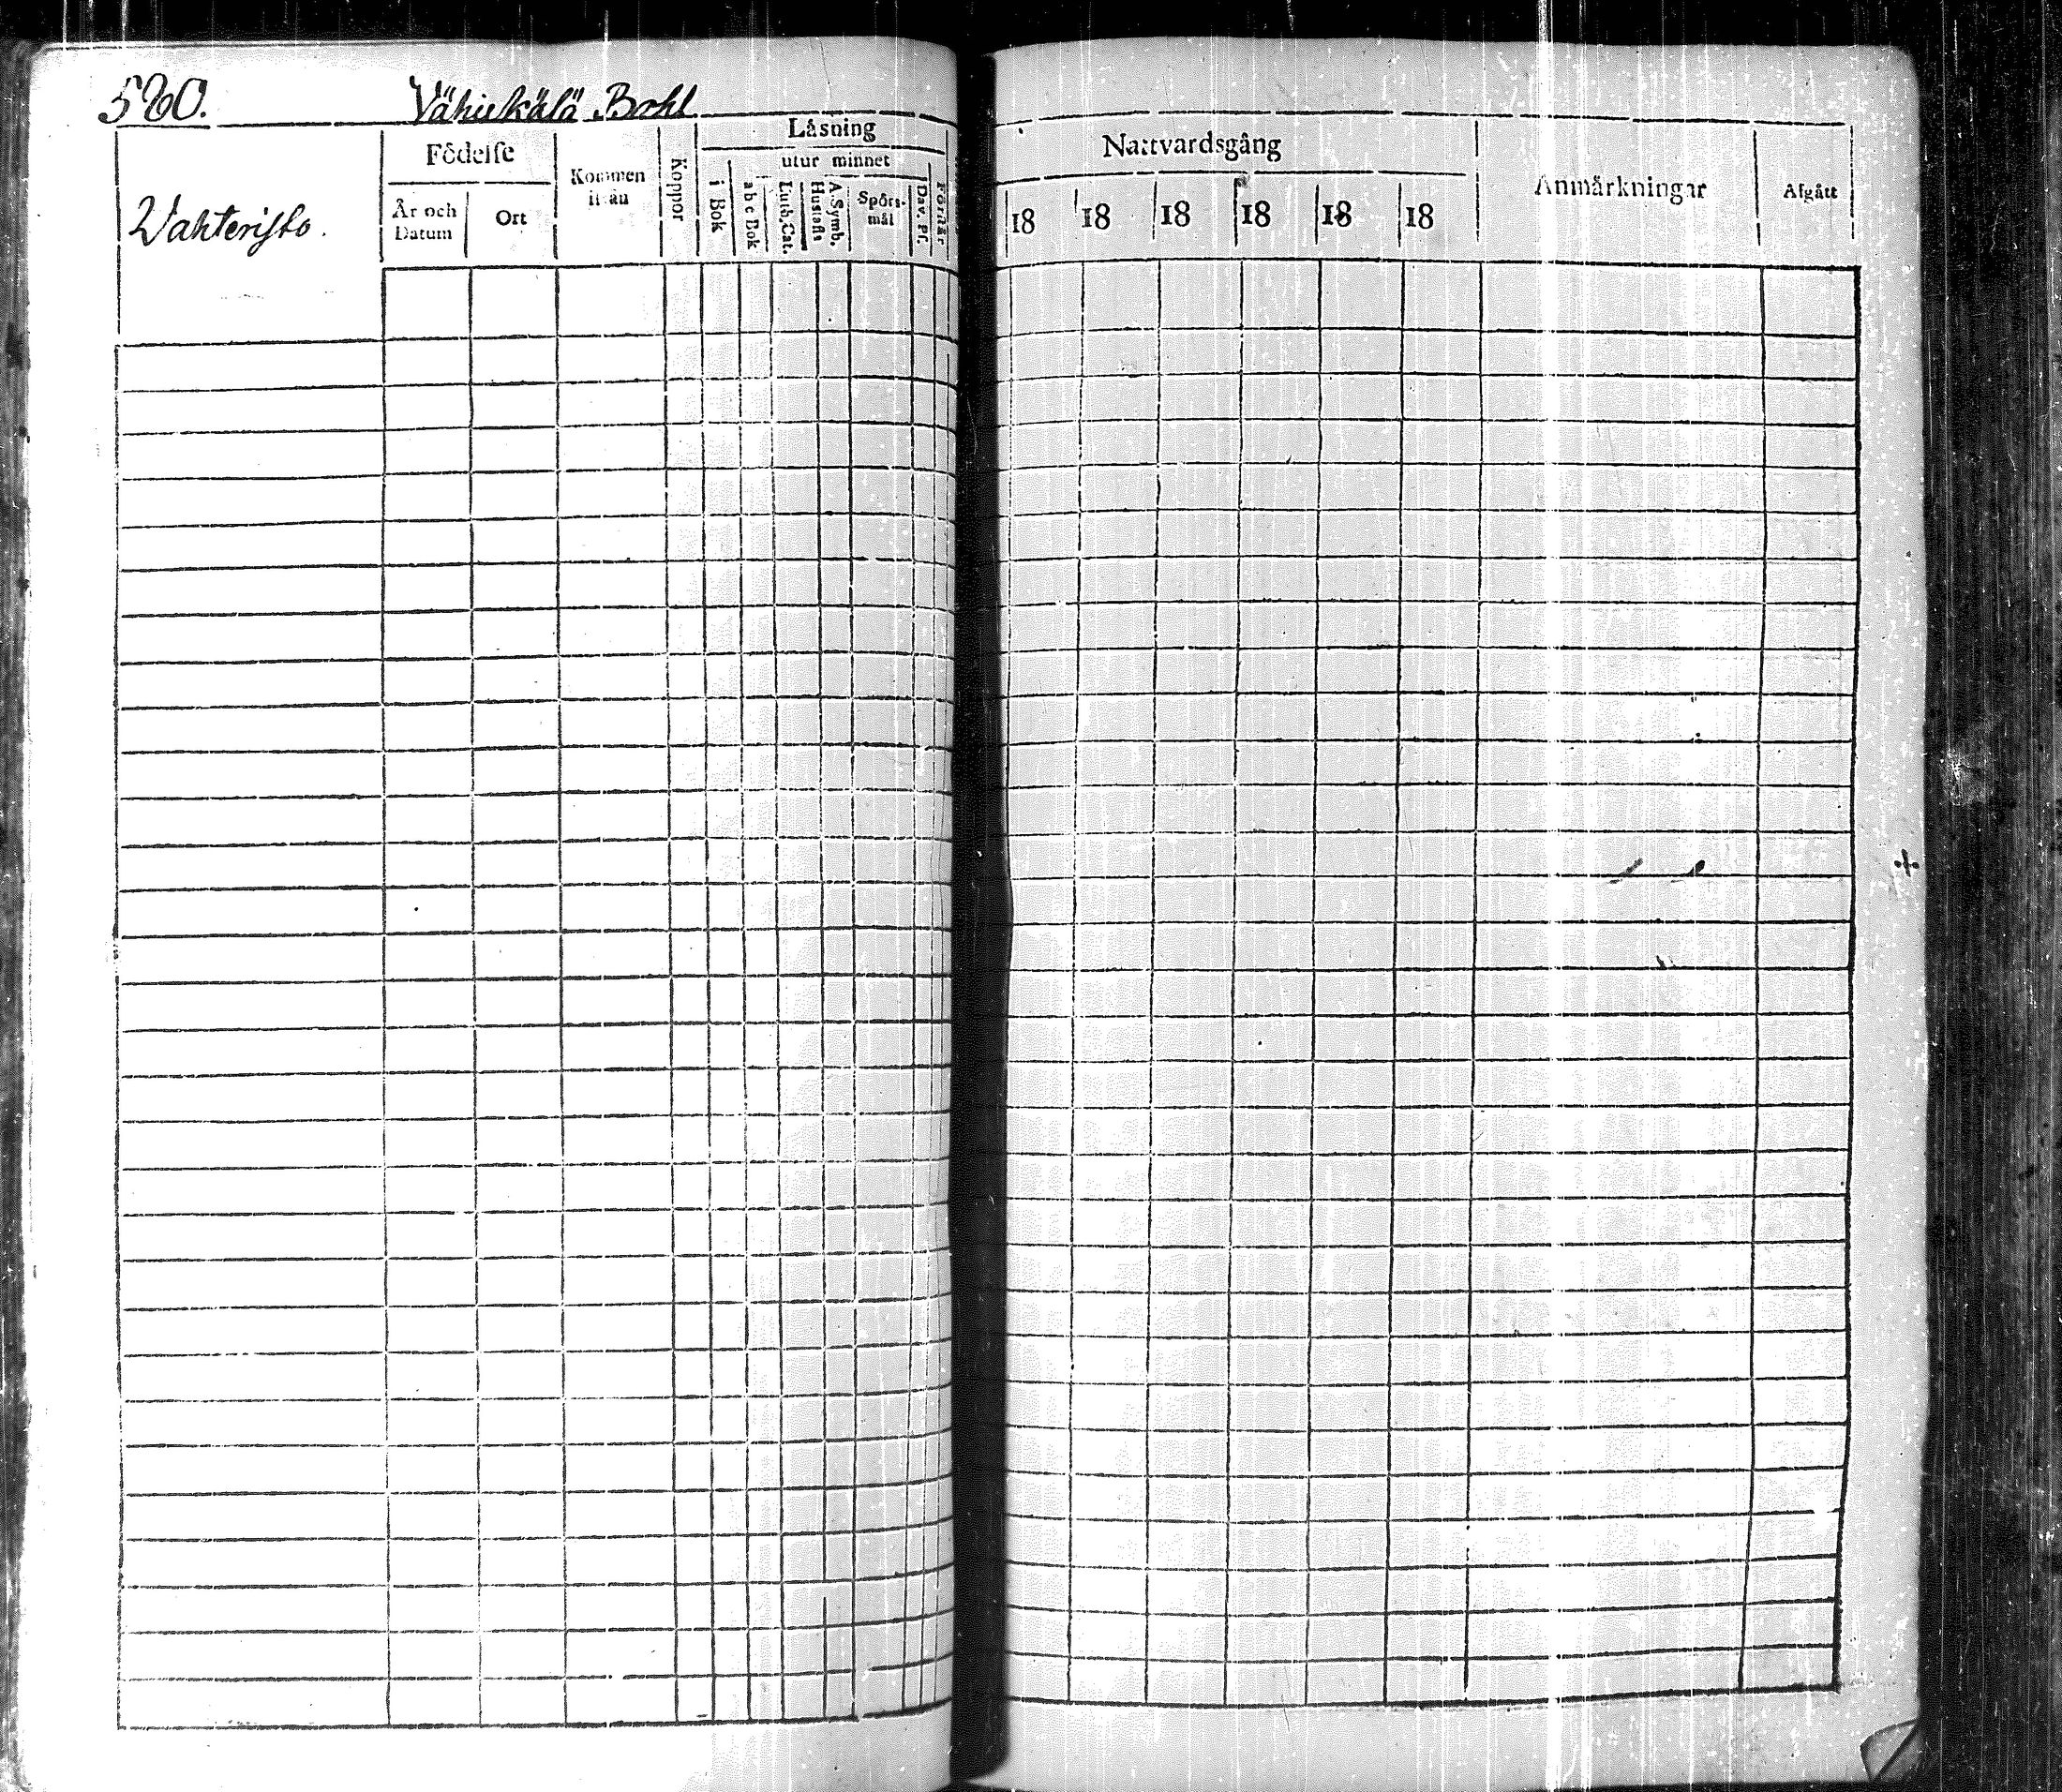 580. Vähiekälä Bohl
Wahteristo.
Födelse
År och Datum
Ort
Kommen ifrån
Koppor
Läsning
i Bok
utur minnet
a b c Bok
Luth. Cat.
Hustafla
A. Symb.
Spörsmål
Dav. Ps.
Förstår
Nattvardsgång
18 18 18 18 18 18
Anmärkningar
Afgått